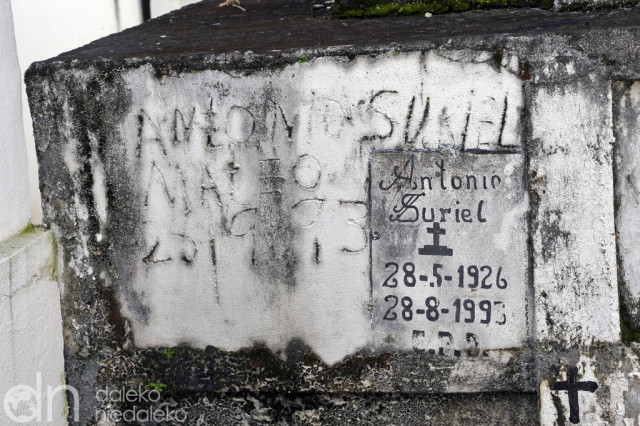 ANTONIO SURIEL
MATEO
Antonio
Suriel
28-5-1926
28-8-1993
E.P.D.
dn daleko
niedaleko